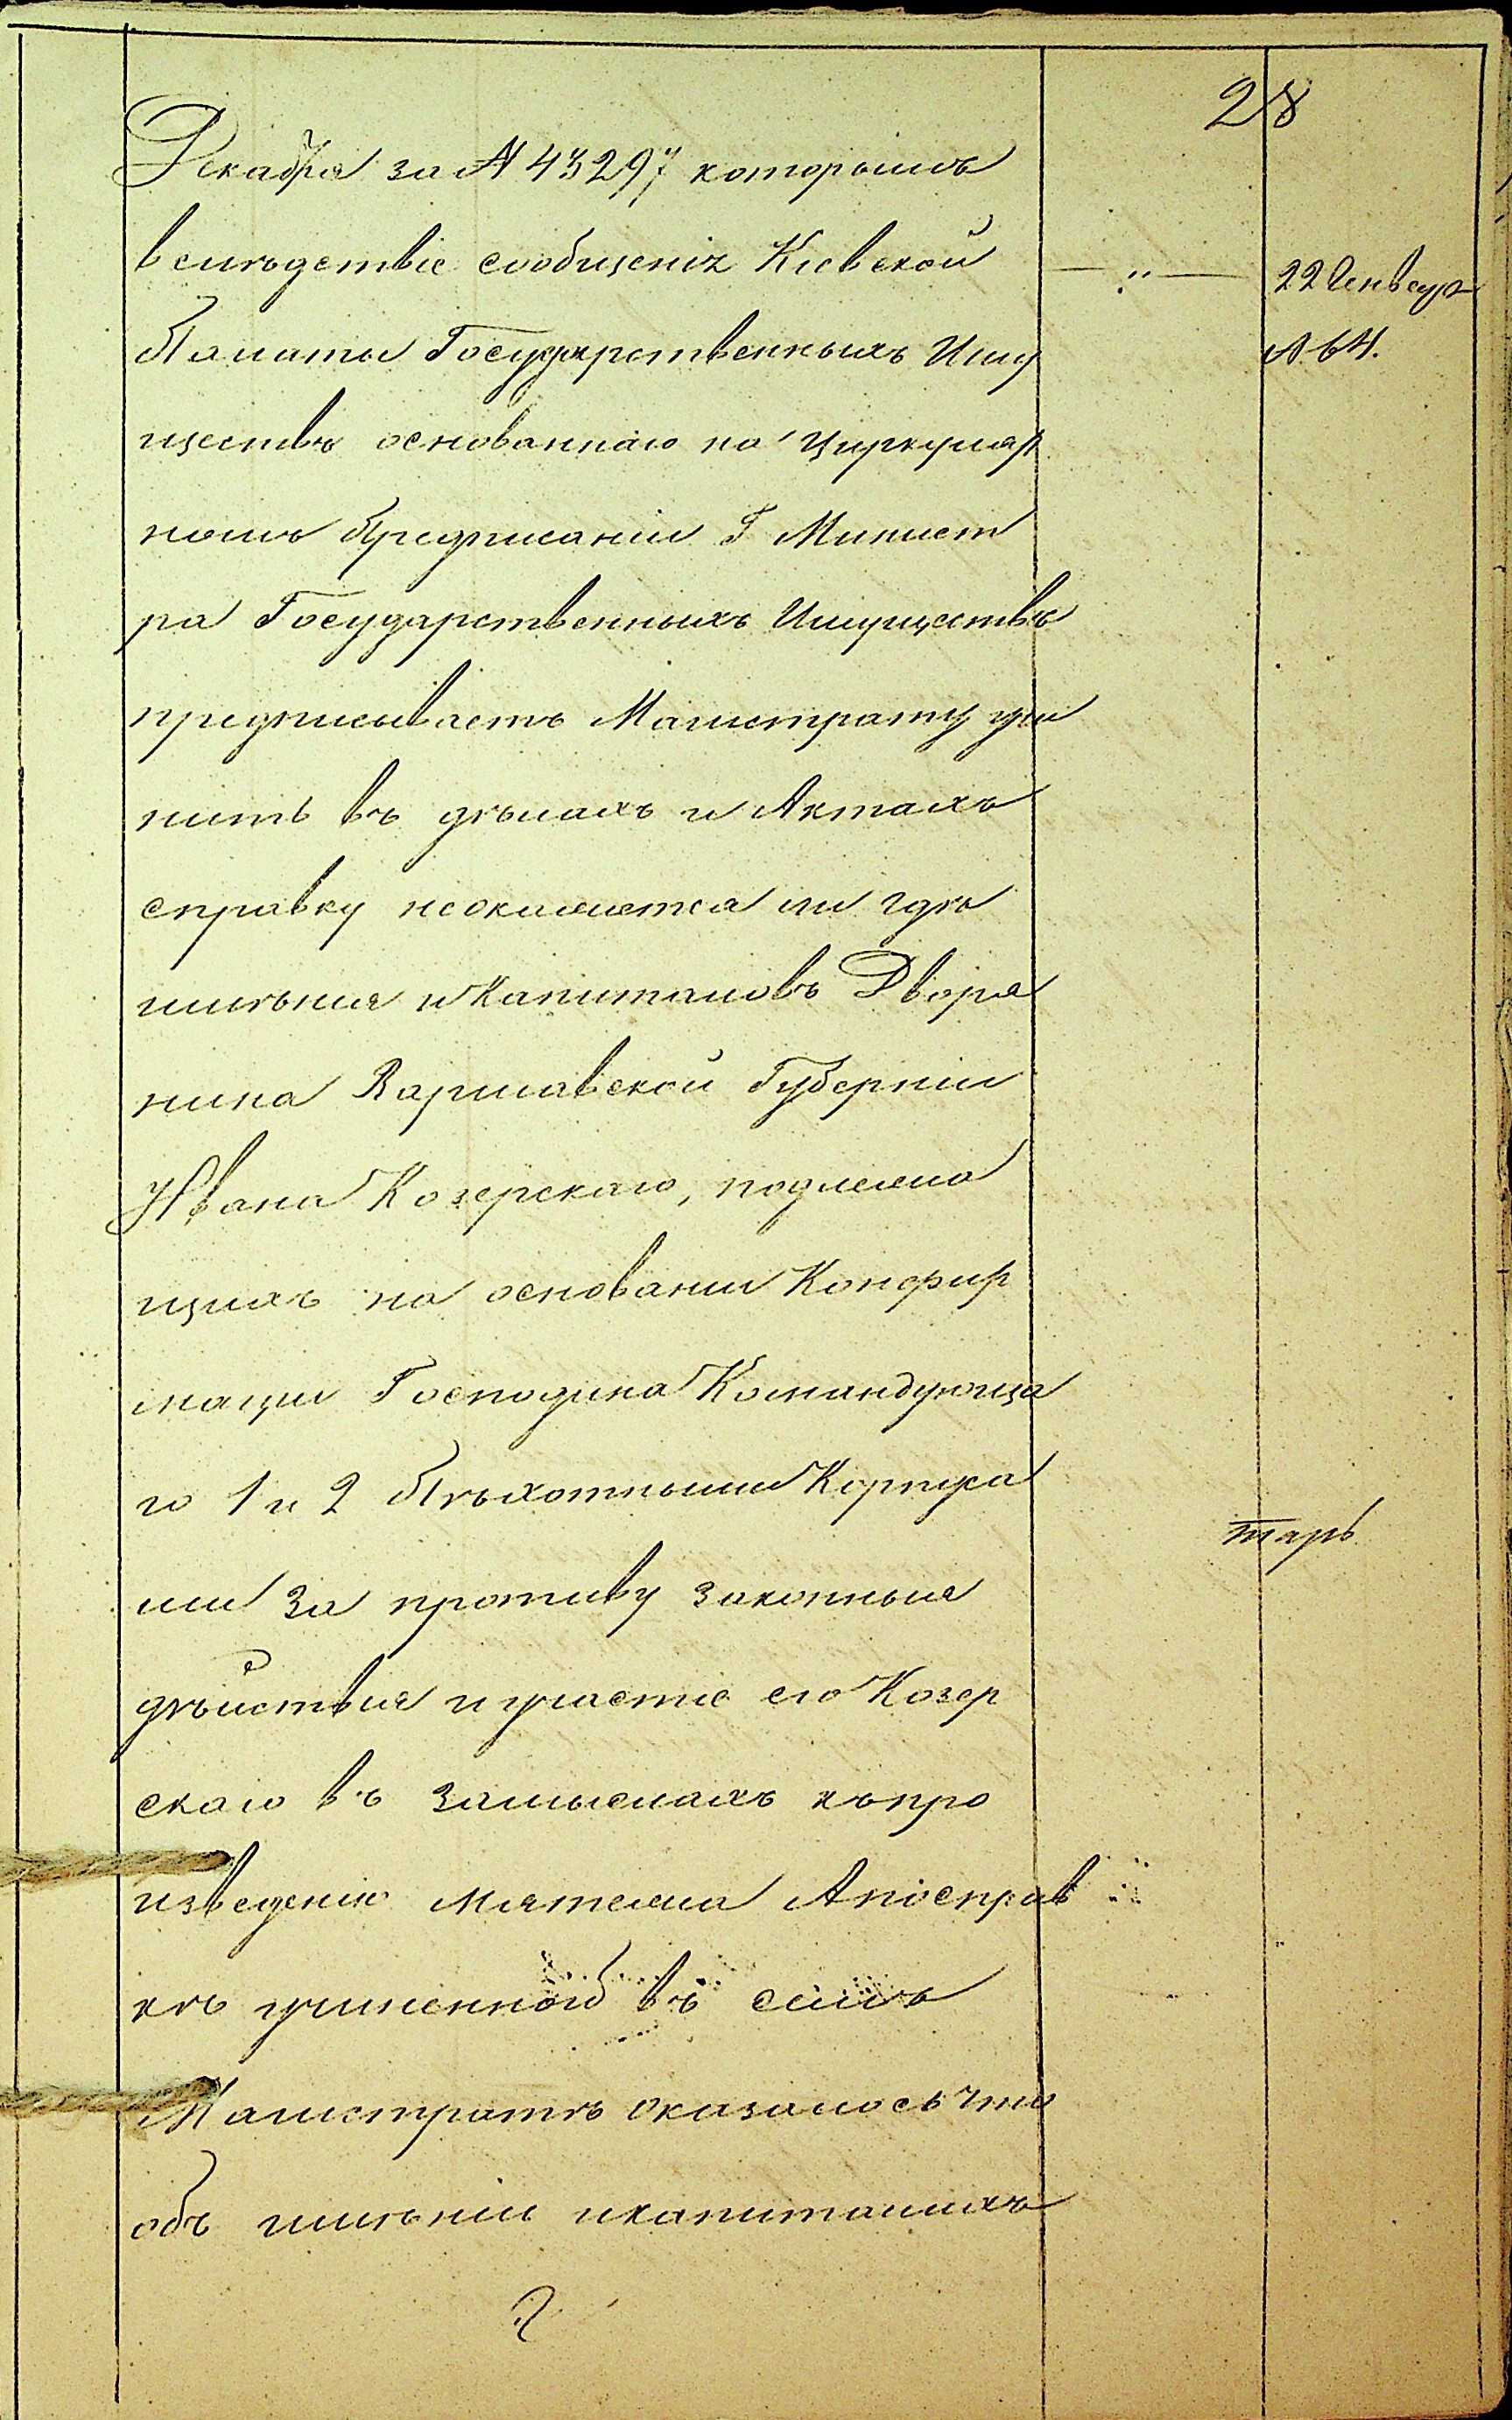 28
Декабря за № 43297, которымъ
вслѣдствіе сообщенія Кіевской
Палаты Государственныхъ Иму
ществъ основаннаго на Циркуляр
номъ Предписаніи Г Минист
ра Государственныхъ Имуществъ
предписываетъ Магистрату учи
нить въ дѣлахъ и Актахъ
справку неокажется ли гдѣ
имѣнія и Капиталовъ Дворя
нина Варшавской Губерніи
Ивана Козерскаго, подлежа
щихъ на основаніи Конфир
маціи Господина Командующа
го 1 и 2 Пѣхотными Корпуса
ми За противу законныя
дѣйствія и участіе его Козер
скаго въ Замыслахъ къпро
изведенію мятежа Апосправ
кѣ учиненной въ семъ
Магистратѣ оказалось что
объ имѣніи икапиталахъ
22 Генваря
№ 64.
тарь